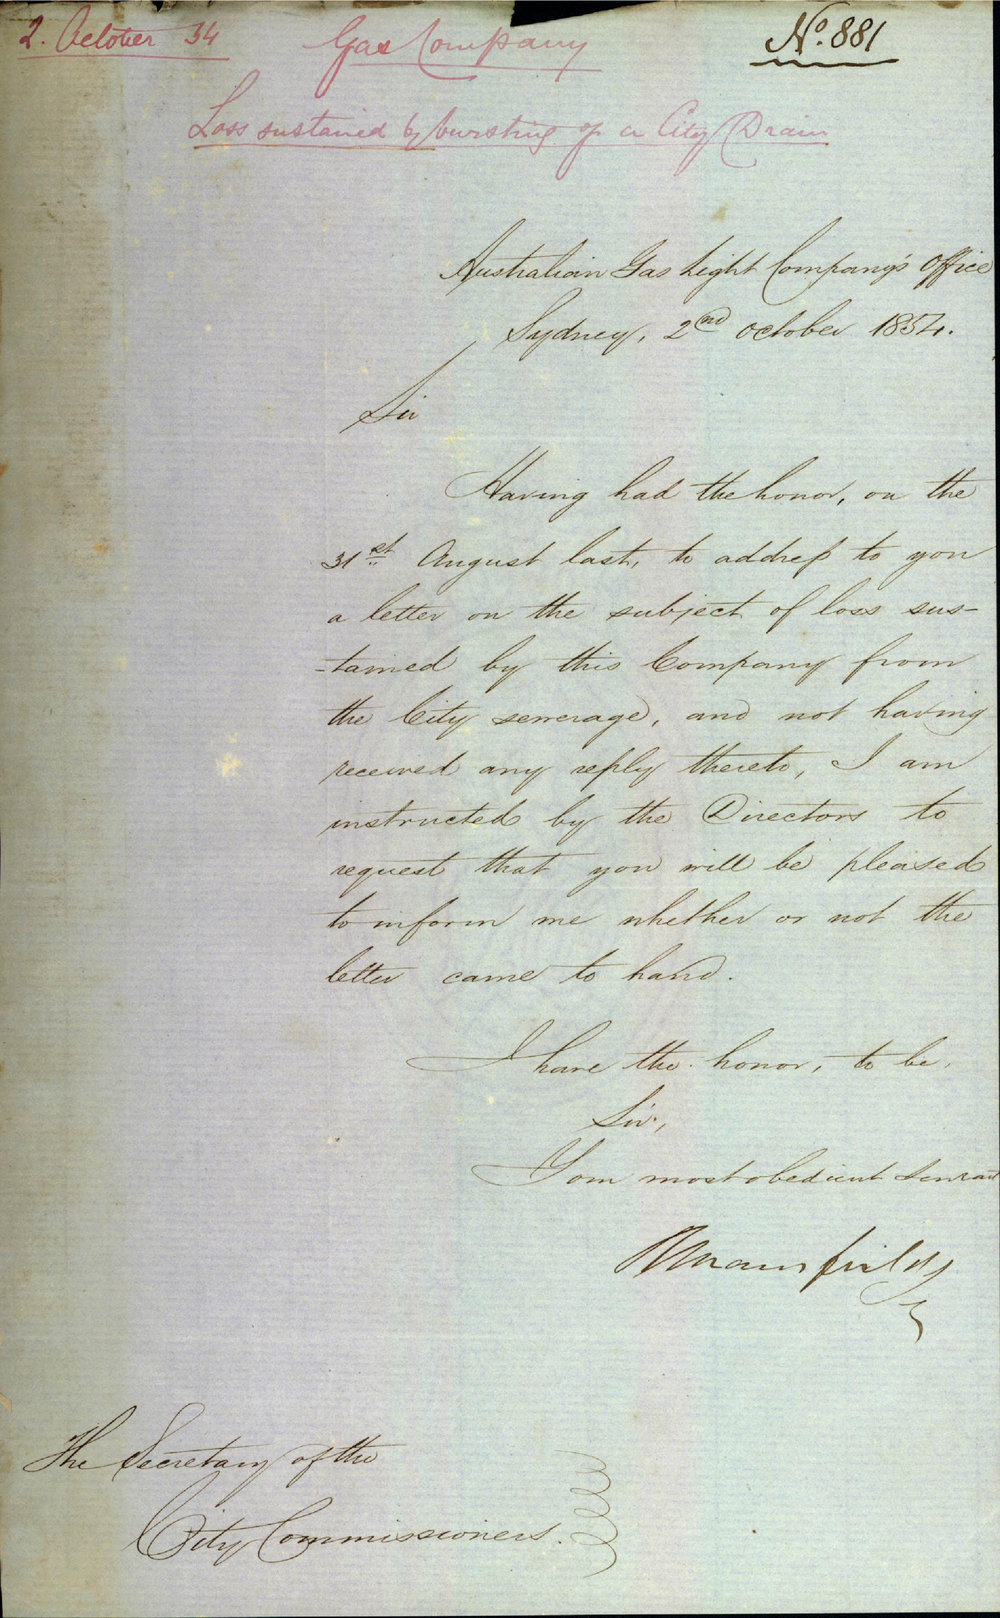 2. October 54
Gas Company
No. 881
Loss sustained by bursting of a City Drain
Australian Gas Light Company's Office
Sydney, 2nd October 1854.
Sir
Having had the honor, on the
31st August last, to address to you
a letter on the subject of loss sus-
-tained by this Company from
the City sewerage, and not having
received any reply thereto, I am
instructed by the Directors to
request that you will be pleased
to inform me whether or not the
letter came to hand.
I have the honor, to be,
Sir,
Your most obedient Servant
R Mansfield
The Secretary of the
City Commissioners.